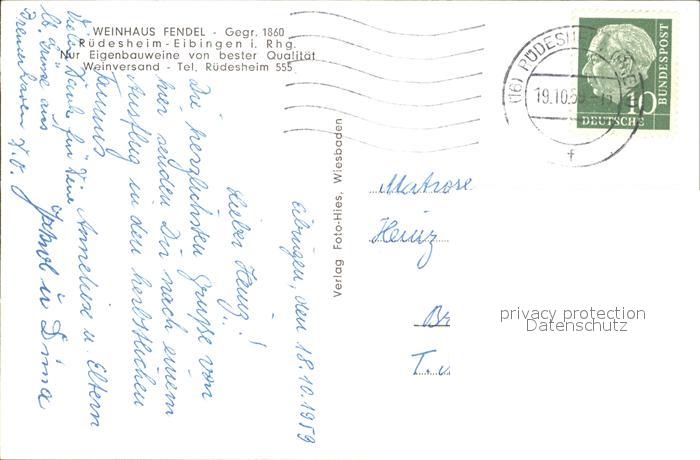 WEINHAUS FENDEL - Gegr. 1860
Rüdesheim-Eibingen i. Rhg.
Nur Eigenbauweine von bester Qualität
Weinversand - Tel. Rüdesheim 555
Eibingen, den 18.10.1959
Lieber Heinz!
Die herzlichsten Grüße von
hier senden Dir nach einem
Ausflug in den herbstlichen
Taunus
Annelise u. Eltern
Vielen Dank für Deine
lb. Grüße aus
Bremerhaven
Verlag Foto-Hies, Wiesbaden
Matrose
Heinz
Br
T.
(16) RÜDESH
19.10.59
f
10
DEUTSCHE
BUNDESPOST
privacy protection
Datenschutz